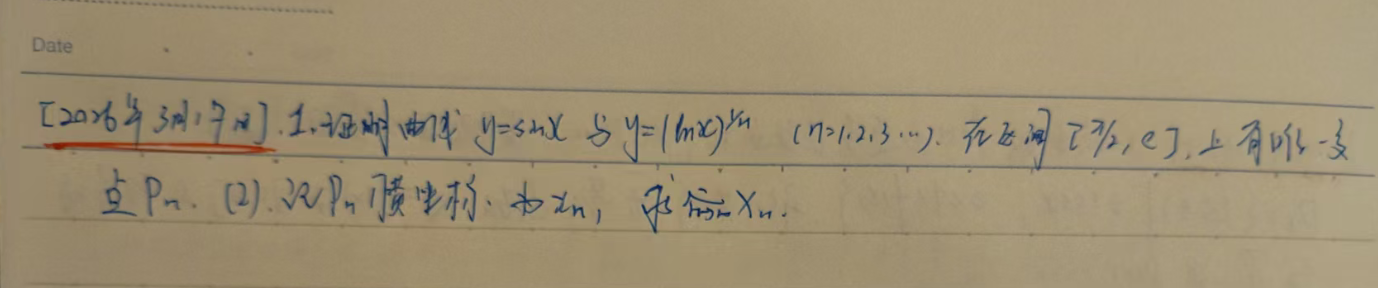 Date
[2026年3月17日]. 1. 证明曲线 y=sinx 与 y=(lnx)^{1/n} (n=1.2.3…). 在区间 [π/2, e]. 上有唯一交
点 Pₙ. (2). 设 Pₙ 横坐标. 为 xₙ, 求 lim Xₙ.